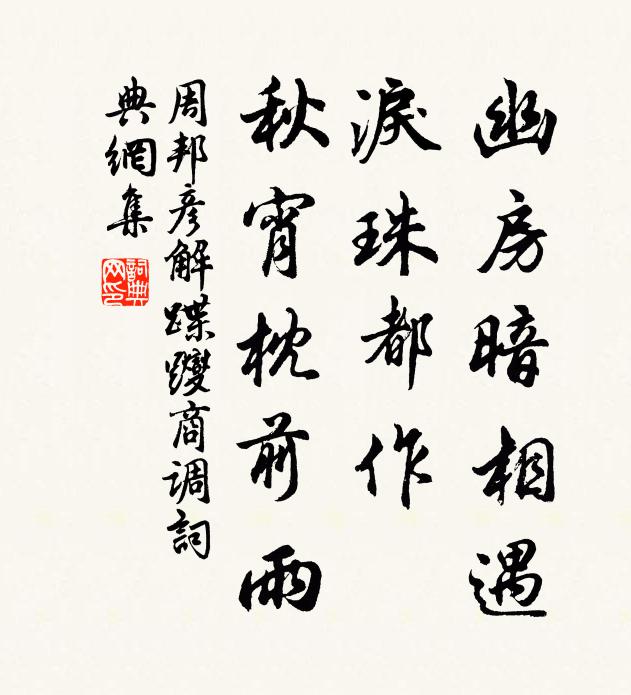 幽房暗相遇
淚珠都作
秋宵枕前雨
周邦彥解蹀躞商調詞
典網集
詞典網印